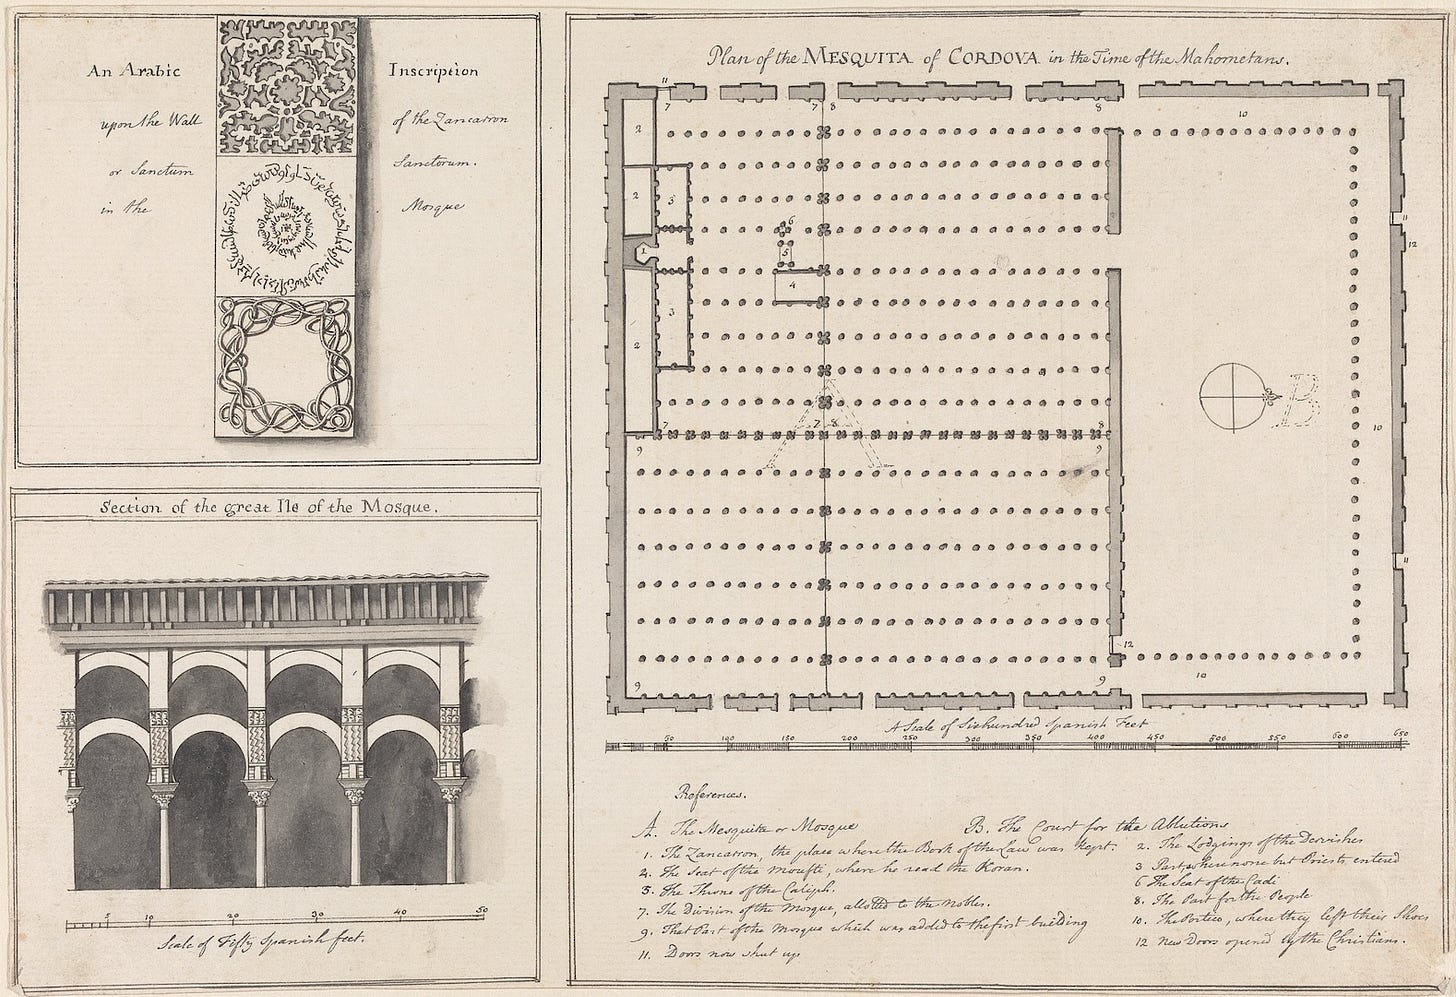 An Arabic Inscription
upon the Wall of the Zancarron
or Sanctum Sanctorum.
in the Mosque
Section of the great Ile of the Mosque.
5 10 20 30 40 50
Scale of Fifty Spanish feet.
Plan of the MESQUITA of CORDOVA in the Time of the Mahometans.
11
7 7 8 8
10
2
2 3
6
11
1 5
12
4
3
2
B
A
10
7 7 8 8
9 9
11
12
10
9 9
A Scale of Sixhundred Spanish Feet
50 100 150 200 250 300 350 400 450 500 550 600 650
References.
A. The Mesquita or Mosque B. The Court for the Ablutions
1. The Zancarron, the place where the Book of the Law was kept. 2. The Lodgings of the Dervishes
4. The Seat of the Moufti, where he read the Koran. 3 Part where none but Priests entered
5. The Throne of the Caliph. 6 The Seat of the Cadi
7. The Division of the Mosque, allotted to the Nobles. 8. The Part for the People
9. That Part of the Mosque which was added to the first building 10. The Portico, where they left their Shoes
11. Doors now shut up 12 New Doors opened by the Christians.